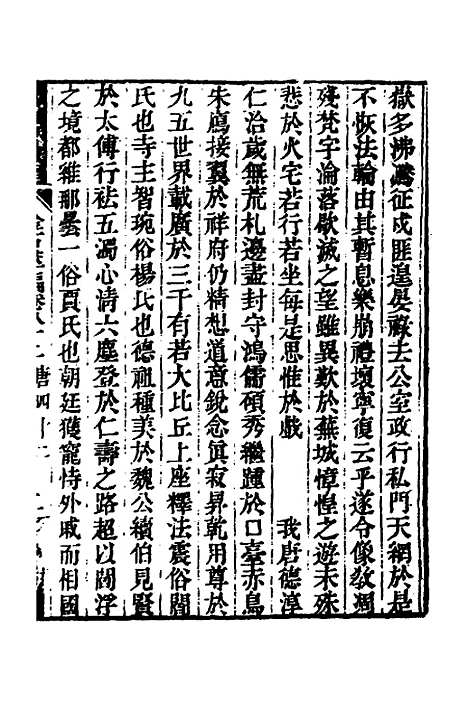 獄多沸騰征戍匪遑晏祿去公室政行私門天網於是
不恢法輪由其暫息樂崩禮壞寧復云乎遂令像敎凋
殘梵宇淪落歇滅之望雖異歎於蕪城憻惶之遊未殊
悲於火宅若行若坐每是思惟於戲　　我唐德淳
仁洽歲無荒札邊盡封守鴻儒碩秀繼踵於口臺赤鳥
朱鴈接翼於祥府仍精想道意銳念眞寂昇乾用尊於
九五世界載廣於三千有若大比丘上座釋法震俗閻
氏也寺主智琬俗楊氏也德祖種美於魏公續伯見賢
於太傅行袪五濁心清六塵登於仁壽之路超以閻浮
之境都維那曇一俗賈氏也朝廷獲寵恃外戚而相國
唐四十二